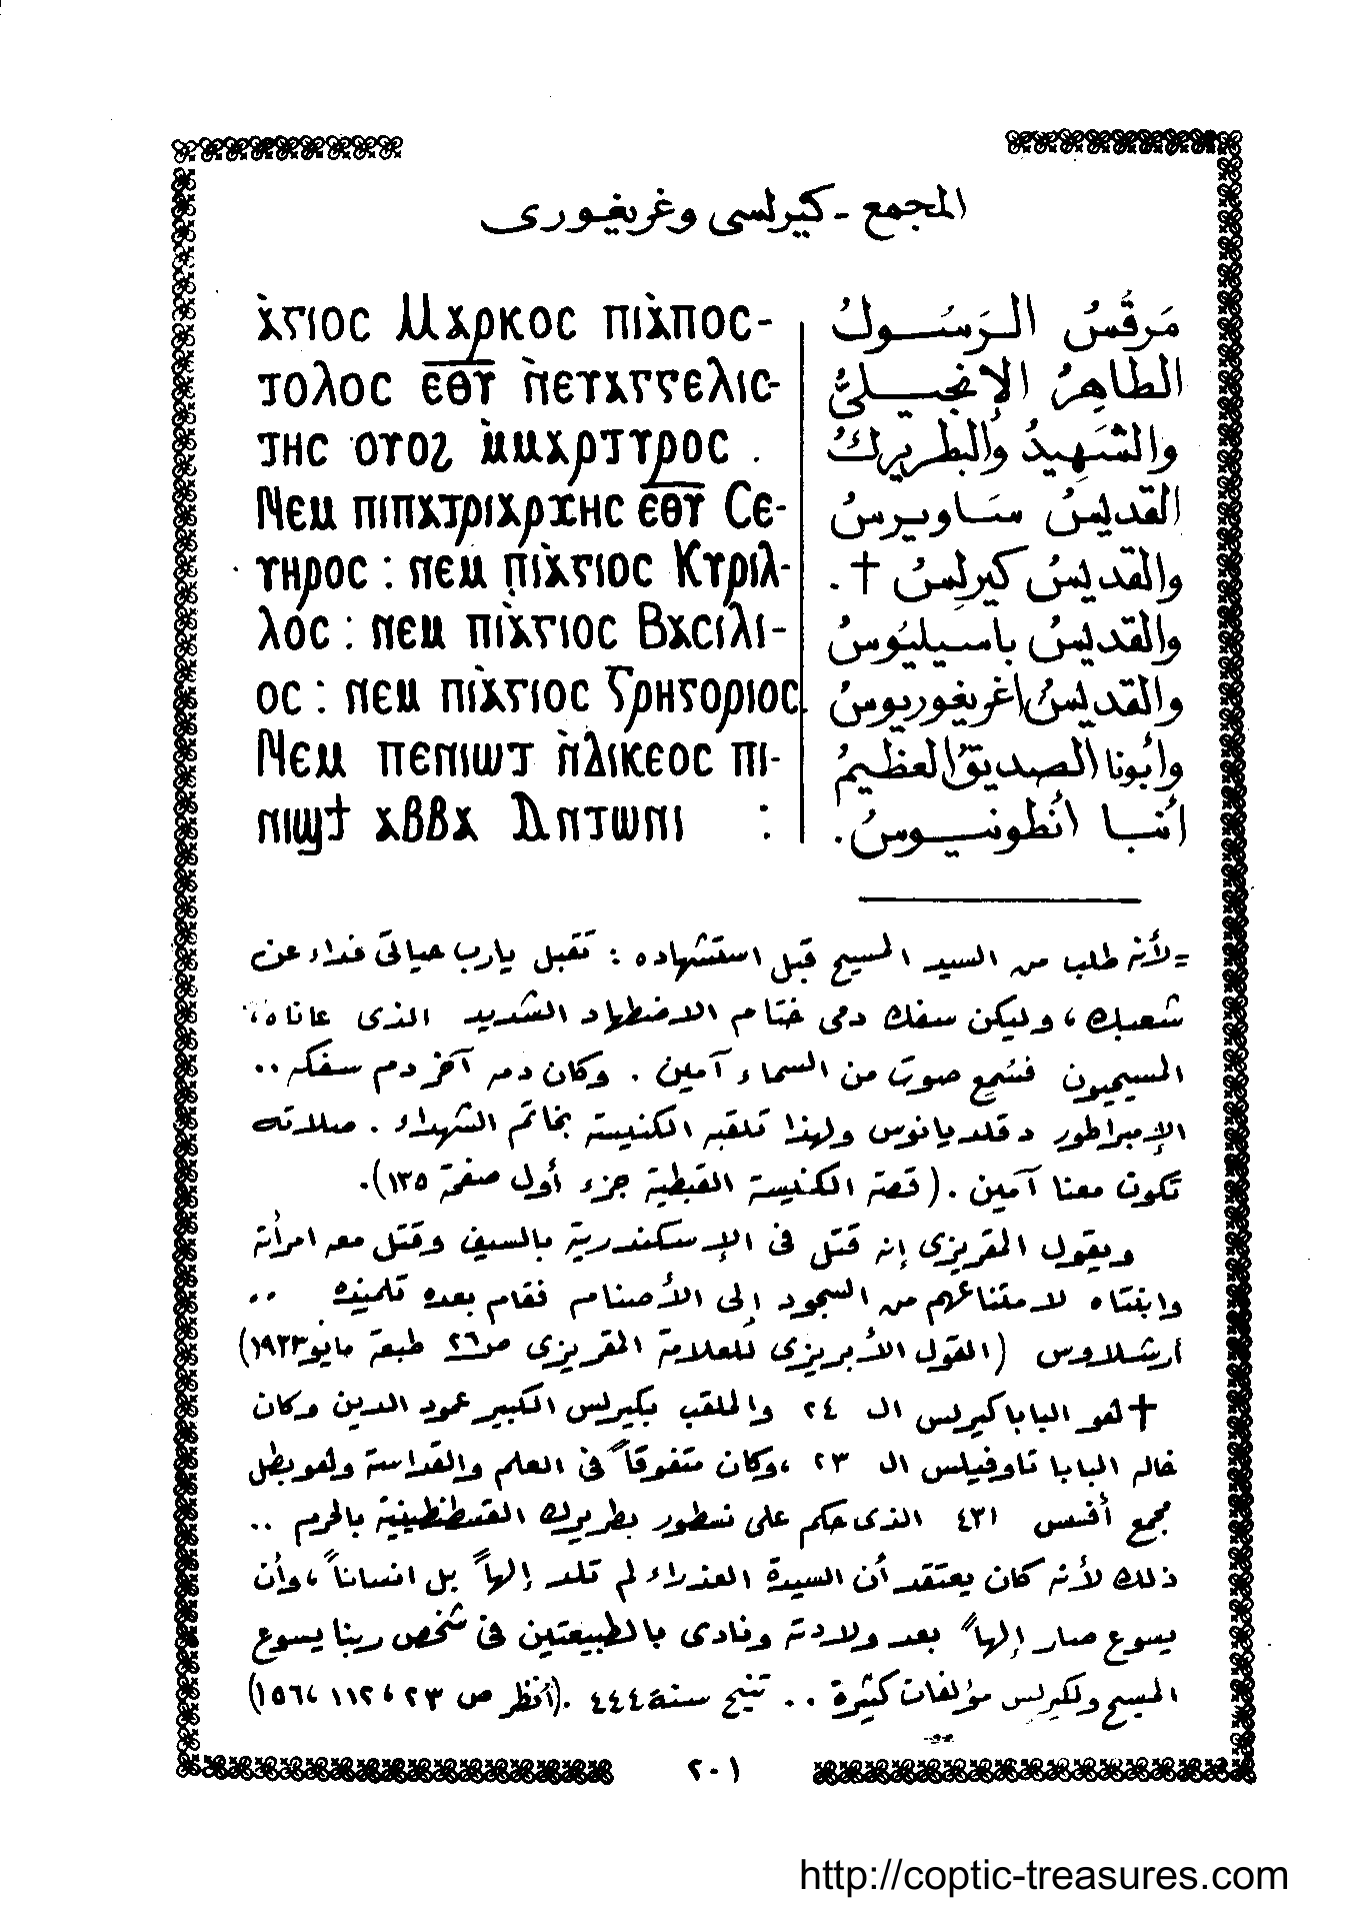 المجمع - كيرلسى وغريغورى
ⲁ̀ⲅⲓⲟⲥ Ⲙⲁⲣⲕⲟⲥ ⲡⲓⲁ̀ⲡⲟⲥ-
ⲧⲟⲗⲟⲥ ⲉ̅ⲑ̅ⲩ̅ ⲛ̀ⲉⲩⲁⲅⲅⲉⲗⲓⲥ-
ⲧⲏⲥ ⲟⲩⲟϩ ⲙ̀ⲙⲁⲣⲧⲩⲣⲟⲥ .
Ⲛⲉⲙ ⲡⲓⲡⲁⲧⲣⲓⲁⲣⲭⲏⲥ ⲉ̅ⲑ̅ⲩ̅ Ⲥⲉ-
ⲩⲏⲣⲟⲥ : ⲛⲉⲙ ⲡⲓⲁ̀ⲅⲓⲟⲥ Ⲕⲩⲣⲓⲗ-
ⲗⲟⲥ : ⲛⲉⲙ ⲡⲓⲁ̀ⲅⲓⲟⲥ Ⲃⲁⲥⲓⲗⲓ-
ⲟⲥ : ⲛⲉⲙ ⲡⲓⲁ̀ⲅⲓⲟⲥ Ⲅⲣⲏⲅⲟⲣⲓⲟⲥ.
Ⲛⲉⲙ ⲡⲉⲛⲓⲱⲧ ⲛ̀ⲇⲓⲕⲉⲟⲥ ⲡⲓ-
ⲛⲓϣϯ ⲁⲃⲃⲁ Ⲁⲛⲧⲱⲛⲓ :
مَرقُسُ الرَسُولُ
الطاهِرُ الإنجيلىُّ
والشَهِيدُ والبطريركُ
القديسُ ساويرسُ
والقديسُ كيرلِسُ † .
والقديسُ باسيليُوسُ
والقديسُ اغريغوريوسُ
وابُونا الصديقُ العظيمُ
أنبا أنطونيوسُ .
= لأنه طلب من السيد المسيح قبل استشهاده : تقبل يارب حياتى فداء عن
شعبك ، وليكن سفك دمى ختام الاضطهاد الشديد الذى عاناه
المسيحيون فسُمِع صوت من السماء آمين . وكان دمه آخر دم سفكه ..
الإمبراطور دقلديانوس ولهذا تلقبه الكنيسة بخاتم الشهداء . صلاته
تكون معنا آمين . (قصة الكنيسة القبطية جزء أول صفحة ١٣٥).
ويقول المقريزى إنه قتل فى الإسكندرية بالسيف وقتل معه امرأته
وابنتاه لامتناعهم من السجود إلى الأصنام فقام بعده تلميذه ..
أرشلاوس (القول الأبريزى للعلامة المقريزى ص٢٦ طبعة مايو ١٩٣٣)
† هو البابا كيرلس الـ ٢٤ والملقب بكيرلس الكبير عمود الدين وكان
خاله البابا تاوفيلس الـ ٢٣ ، وكان متفوقاً فى العلم والقداسة وهو بطل
مجمع أفسس ٤٣١ الذى حكم على نسطور بطريرك القسطنطينية بالحرم ..
ذلك لأنه كان يعتقد أن السيدة العذراء لم تلد إلهاً بل انساناً ، وأن
يسوع صار إلهاً بعد ولادته ونادى بالطبيعتين فى شخص ربنا يسوع
المسيح ولكيرلس مؤلفات كثيرة .. تنيح سنة ٤٤٤ . (أنظر ص ٢٣ ، ١١٢ ، ١٥٦)
٢٠١
http://coptic-treasures.com